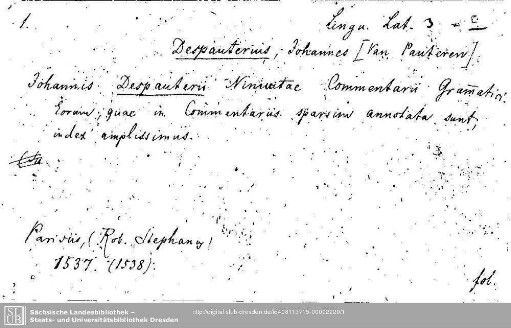 1.
Lingu. Lat. 3 = c
Despauterius, Johannes [Van Pauteren]
Johannis Despauterii Ninivitae Commentarii Gramatici.
Eorum, quae in Commentariis sparsim annotata sunt,
index amplissimus.
Parisiis, (Rob. Stephanus)
1537. (1538).
fol.
Sächsische Landesbibliothek –
Staats- und Universitätsbibliothek Dresden